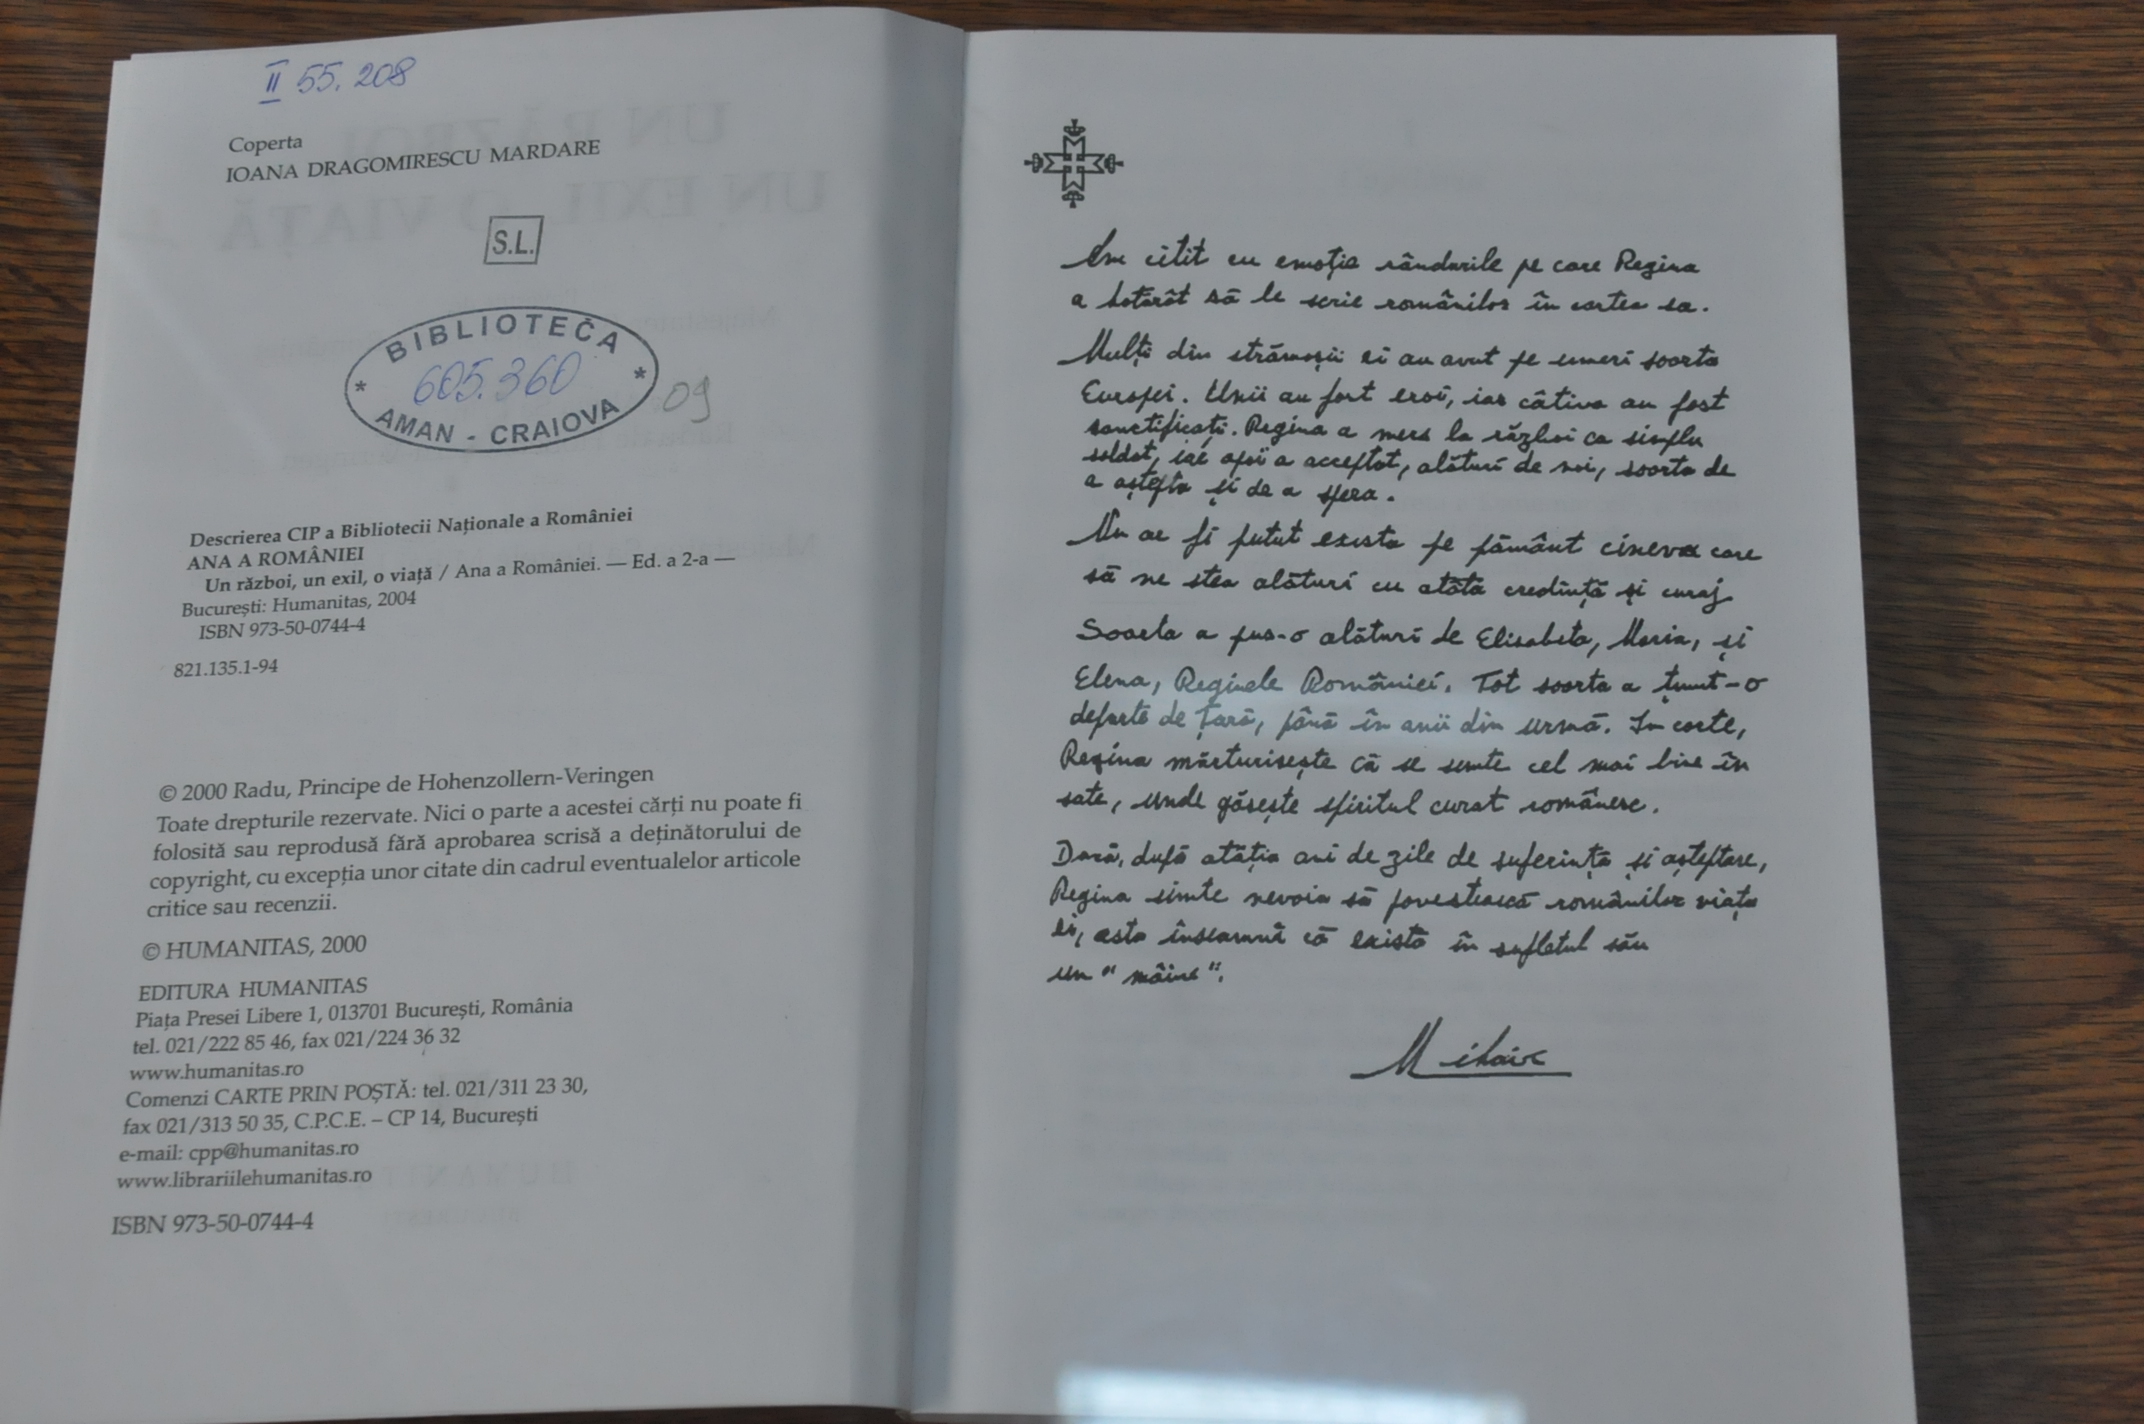 II 55.208
Coperta
IOANA DRAGOMIRESCU MARDARE
S.L.
BIBLIOTECA
605.360
* *
AMAN - CRAIOVA
09
Descrierea CIP a Bibliotecii Naționale a României
ANA A ROMÂNIEI
Un război, un exil, o viață / Ana a României. — Ed. a 2-a —
București: Humanitas, 2004
ISBN 973-50-0744-4
821.135.1-94
© 2000 Radu, Principe de Hohenzollern-Veringen
Toate drepturile rezervate. Nici o parte a acestei cărți nu poate fi
folosită sau reprodusă fără aprobarea scrisă a deținătorului de
copyright, cu excepția unor citate din cadrul eventualelor articole
critice sau recenzii.
© HUMANITAS, 2000
EDITURA HUMANITAS
Piața Presei Libere 1, 013701 București, România
tel. 021/222 85 46, fax 021/224 36 32
www.humanitas.ro
Comenzi CARTE PRIN POȘTĂ: tel. 021/311 23 30,
fax 021/313 50 35, C.P.C.E. – CP 14, București
e-mail: cpp@humanitas.ro
www.librariilehumanitas.ro
ISBN 973-50-0744-4
Am citit cu emoție rândurile pe care Regina
a hotărât să le scrie românilor în cartea sa.
Mulți din strămoșii ei au avut pe umeri soarta
Europei. Unii au fost eroi, iar câtiva au fost
sanctificați. Regina a mers la război ca simplu
soldat, iar apoi a acceptat, alături de noi, soarta de
a aștepta și de a spera.
Nu ar fi putut exista pe pământ cineva care
să ne stea alături cu atâta credință și curaj
Soarta a pus-o alături de Elisabeta, Maria, și
Elena, Reginele României. Tot soarta a ținut-o
departe de Țară, până în anii din urmă. In carte,
Regina mărturisește că se simte cel mai bine în
sate, unde găsește spiritul curat românesc.
Dacă, după atâția ani de zile de suferință și așteptare,
Regina simte nevoia să povestească românilor viața
ei, asta înseamnă că există în sufletul său
un "mâine".
Mihai R